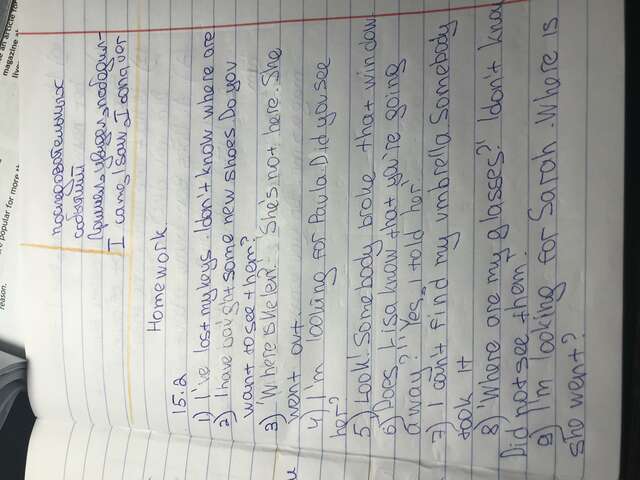 последовательных
событий
Пришел, увидел, победил -
I came, I saw, I conquer
Homework
15.2
1) I've lost my keys. I don't know where are
2) I have bought some new shoes. Do you
want to see them?
3) 'Where is Helen'. 'She's not here. She
went out.
4) I'm looking for Paula. Did you see
her?
5) Look! Somebody broke that window
6) 'Does Lisa know that you're going
away?' 'Yes, I told her'
7) I can't find my umbrella. Somebody
took it
8) 'Where are my glasses?' 'I don't know
Did not see them.'
9) I'm looking for Sarah. Where is
she went?
magazine
popular for more
reason.